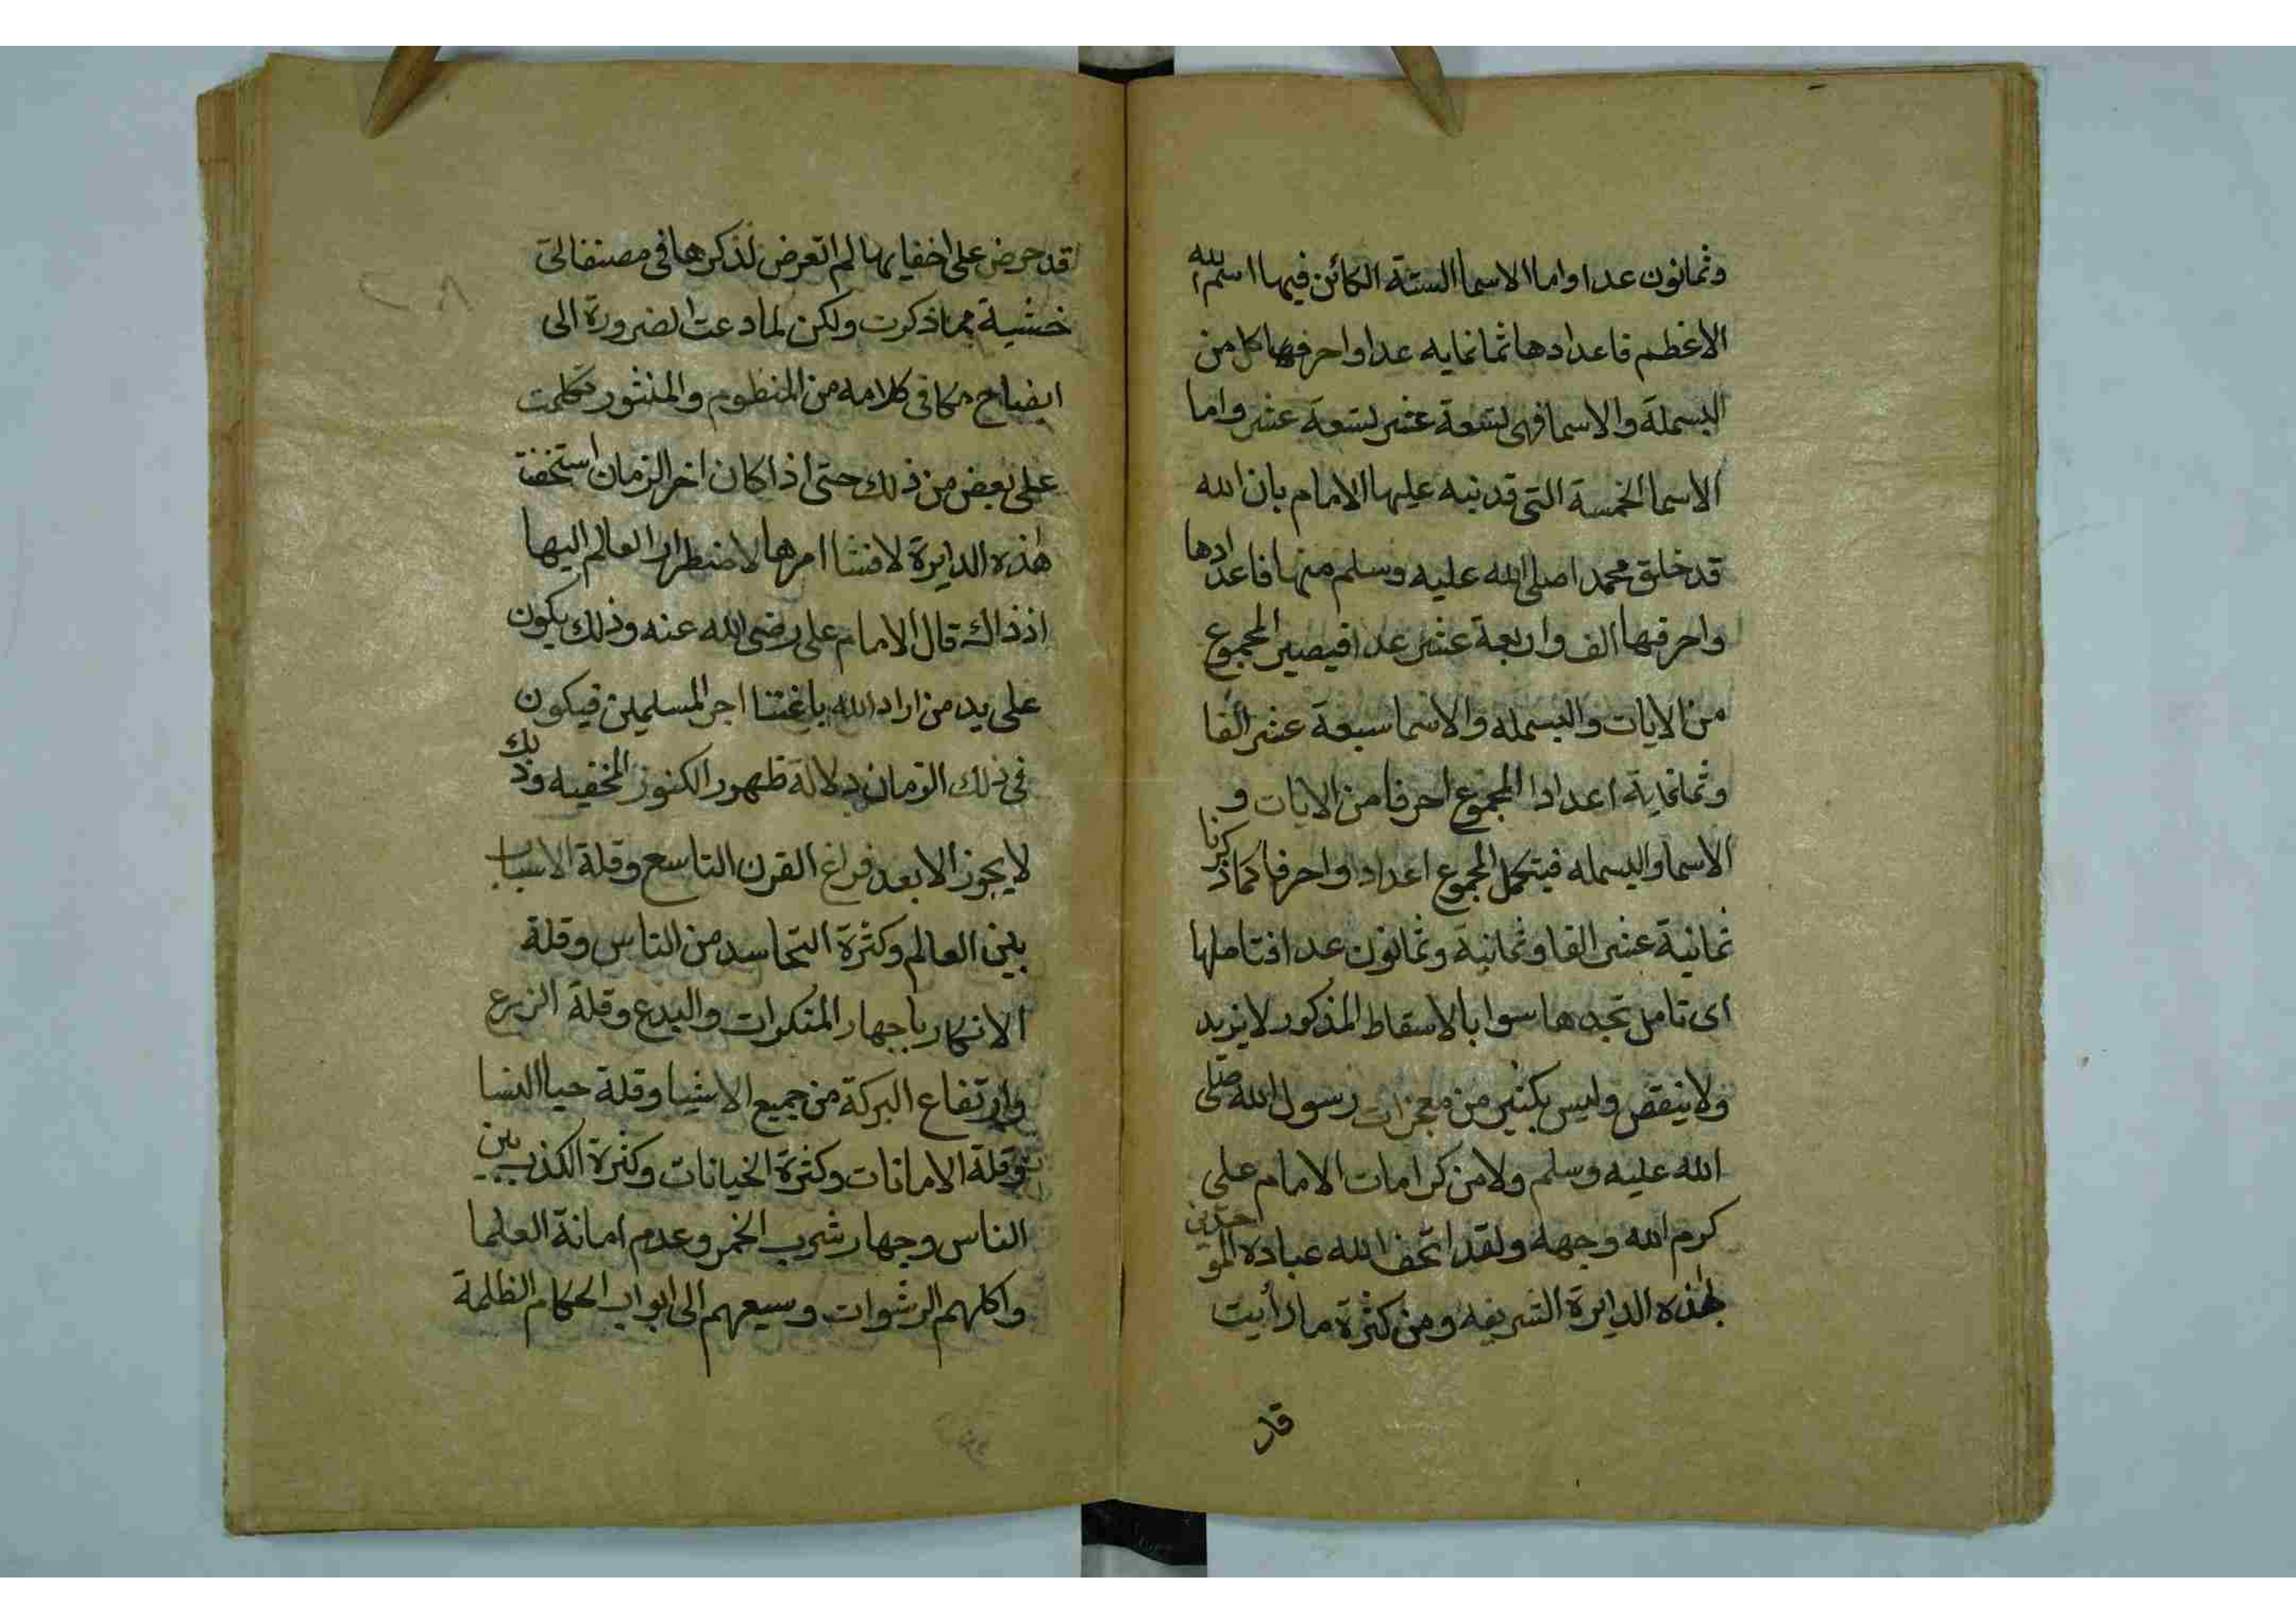 وثمانون عدا واما الاسما الستة الكائن فيها اسم الله
الاعظم فاعدادها ثمانمايه عدا واحرفها كل من
البسملة والاسما فهى تسعة عشر تسعة عشر واما
الاسما الخمسة التى قد نبه عليها الامام بان الله
قد خلق محمدا صلى الله عليه وسلم منها فاعدادها
واحرفها الف واربعة عشر عدا فيصير المجموع
من الايات والبسمله والاسما سبعة عشر الفا
وثمانماية اعدادا المجموع احرفا من الايات و
الاسما والبسمله فيتكمل المجموع اعدادا واحرفا كما ذكرنا
ثمانية عشر الفا وثمانية وثمانون عدا فتاملها
اى تامل تجدها سوا بالاسقاط المذكور لا يزيد
ولا ينقص وليس بكثير من معجزات رسول الله صلى
الله عليه وسلم ولا من كرامات الامام على
كرم الله وجهه ولقد اتحف الله عباده الموحدين
بهذه الدايرة الشريفه ومن كثرة ما رأيت
قد
قد حرض على اخفايها لم اتعرض لذكرها فى مصنفاتى
خشية مما ذكرت ولكن لما دعت الضرورة الى
ايضاح مكافى كلامه من المنظوم والمنثور تكلمت
على بعض من ذلك حتى اذا كان اخر الزمان استخفت
هذه الدايرة لافشا امرها لاضطرار العالم اليها
اذ ذاك قال الامام على رضى الله عنه وذلك يكون
على يد من اراد الله باغتنا اجر المسلمين فيكون
فى ذلك الزمان دلالة ظهور الكنوز المخفيه وذلك
لا يجوز الا بعد فراغ القرن التاسع وقلة الاسباب
بين العالم وكثرة التحاسد من الناس وقلة
الانكار باجهار المنكرات والبدع وقلة الزرع
وارتفاع البركة من جميع الاشيا وقلة حيا النسا
وقلة الامانات وكثرة الخيانات وكثرة الكذب بين
الناس وجهار شرب الخمر وعدم امانة العلما
واكلهم الرشوات وسيعهم الى ابواب الحكام الظلمة